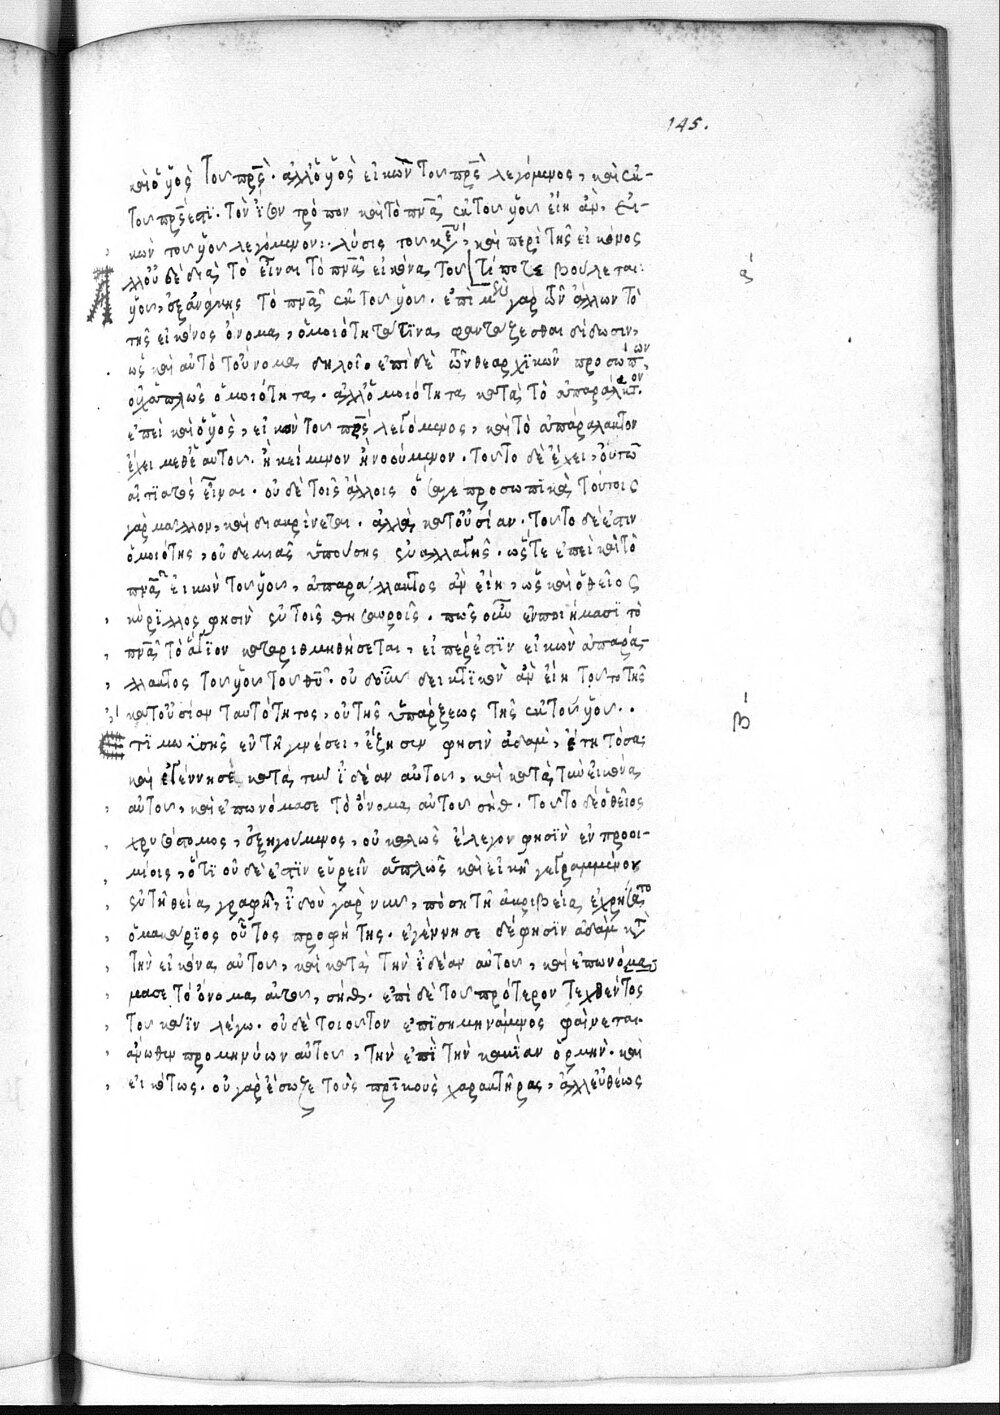 145.
καὶ ὁ υἱὸς τοῦ πρς̅. ἀλλ' ὁ υἱὸς εἰκὼν τοῦ πρς̅ λεγόμενος, καὶ ἐκ
τοῦ πρς̅ ἐστϊ. τὸν ἴσον τρόπον καὶ τὸ πνᾶ ἐκ τοῦ υἱοῦ εἴη ἂν, εἰ-
κὼν τοῦ υἱοῦ λεγόμενον: λύσις τοῦ κε, καὶ περὶ τῆς εἰκόνος
Αλλ' οὐδὲ διὰ τὸ εἶναι τὸ πνᾶ εἰκόνα τοῦ τί ποτε βούλεται: ς΄
υἱοῦ, ἐξανάγκης τὸ πνᾶ ἐκ τοῦ υἱοῦ. ἐπὶ μὲν γὰρ τῶν ἄλλων τὸ
τῆς εἰκόνος ὄνομα, ὁμοιότητά τϊνα φαντάζεσθαι δίδωσιν,
ὡς καὶ αὐτὸ τοὔνομα δηλοῖ· ἐπὶ δὲ τῶν θεαρχϊκῶν προσώπων
οὐχ ἁπλῶς ὁμοιότητα. ἀλλ' ὁμοιότητα κατὰ τὸ ἀπαράλακτον.
ἐπεὶ καὶ ὁ υἱὸς, εἰκὼν τοῦ πρς̅ λεγόμενος, καὶ τὸ ἀπαράλακτον
ἔχει μεθ' ἑαυτοῦ. ἢ κείμενον ἢ νοούμενον. τοῦτο δὲ ἔχει, οὐ τῶ
αἰτϊατὸς εἶναι. οὐδὲ τοῖς ἄλλοις ὅσα γε προσωπϊκὰ τούτοις
γὰρ μᾶλλον, καὶ διακρίνεται. ἀλλὰ κατοὐσίαν. τοῦτο δέ ἐστιν
ὁμοιότης, οὐδεμιᾶς ὑπούσης ἐναλλαγῆς. ὥστε ἐπεὶ καὶ τὸ
πνᾶ εἰκὼν τοῦ υἱοῦ, ἀπαράλλακτος ἂν εἴη, ὡς καὶ ὁ θεῖος
κύρϊλλος φησὶν ἐν τοῖς θησαυροῖς. πῶς οὖν ἐν ποιήμασϊ τὸ
πνᾶ τὸ ἅγϊον καταριθμηθήσεται, εἴπερ ἐστϊν εἰκὼν ἀπαρά-
λλακτος τοῦ υἱοῦ τοῦ θῦ. οὐδοῦν δεικτϊκὸν ἂν εἴη τοῦτο τῆς
κατοὐσίαν ταυτότητος, οὐ τῆς ὑπάρξεως τῆς ἐκ τοῦ υἱοῦ. . Β΄
Ετϊ μωϊσῆς ἐν τῆ γενέσει, ἔζησεν φησὶν ἀδὰμ, ἔτη τόσα:
καὶ ἐγέννησε κατὰ τὴν ἰδέαν αὐτοῦ, καὶ κατὰ τὴν εἰκόνα
αὐτοῦ, καὶ ἐπωνόμασε τὸ ὄνομα αὐτοῦ σήθ. τοῦτο δὲ ὁ θεῖος
χρυσόστομος, ἐξηγούμενος, οὐ καλῶς ἔλεγον φησϊν ἐν προοι-
μίοις, ὅτϊ οὐδέ ἐστϊν εὑρεῖν ἁπλῶς καὶ εἰκῆ γεγραμμένον
ἐν τῆ θεία γραφῆ, ἰδοὺ γὰρ νῦν, πόση τῆ ἀκριβεία ἐχρήσατο
ὁ μακάρϊος οὗτος προφήτης. ἐγέννησε δέ φησϊν ἀδὰμ κατὰ
τὴν εἰκόνα αὐτοῦ, καὶ κατὰ τὴν ἰδέαν αὐτοῦ, καὶ ἐπωνόμα
μασε τὸ ὄνομα αὐτοῦ, σήθ. ἐπὶ δὲ τοῦ πρότερον τεχθέντος
τοῦ κάϊν λέγω. οὐδὲ τοιοῦτον ἐπϊσημηνάμενος φαίνεται.
ἄνωθεν προμηνύων αὐτοῦ, τὴν ἐπὶ τὴν κακίαν ὁρμήν. καὶ
εἰκότως. οὐ γὰρ ἔσωζε τοὺς πρϊκοὺς χαρακτῆρας, ἀλλ' εὐθέως